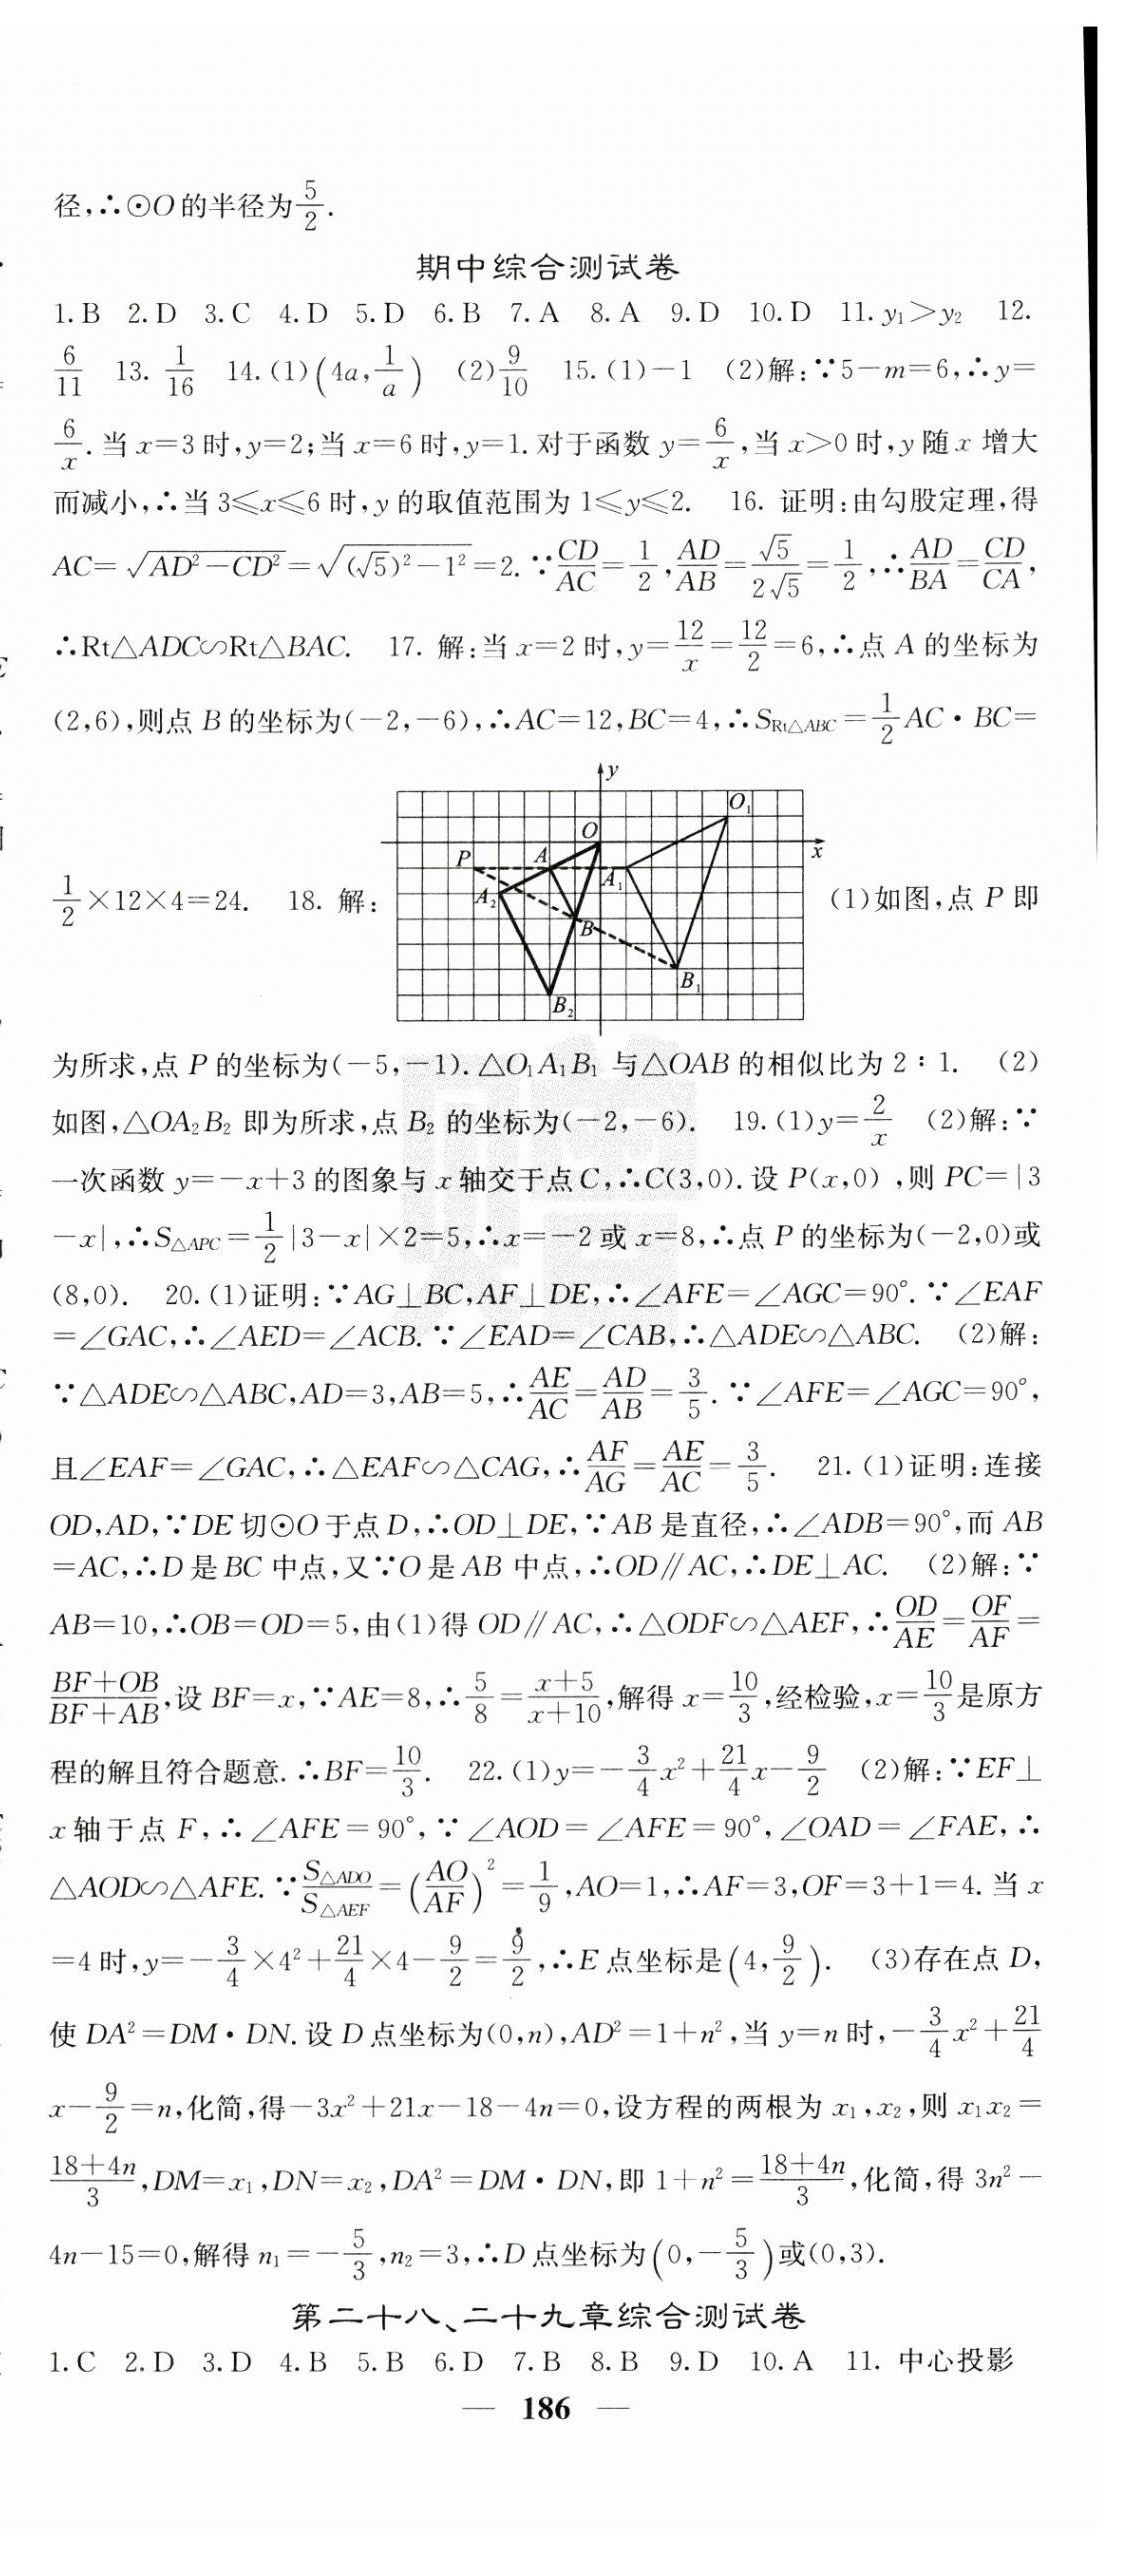 径,∴⊙O的半径为5/2.
期中综合测试卷
1.B 2.D 3.C 4.D 5.D 6.B 7.A 8.A 9.D 10.D 11.y₁>y₂ 12.
6/11 13. 1/16 14.(1)(4a,1/a) (2)9/10 15.(1)-1 (2)解:∵5-m=6,∴y=
6/x.当x=3时,y=2;当x=6时,y=1.对于函数y=6/x,当x>0时,y随x增大
而减小,∴当3≤x≤6时,y的取值范围为1≤y≤2. 16. 证明:由勾股定理,得
AC=√(AD²-CD²)=√((√5)²-1²)=2.∵CD/AC=1/2,AD/AB=√5/2√5=1/2,∴AD/BA=CD/CA,
∴Rt△ADC∽Rt△BAC. 17. 解:当x=2时,y=12/x=12/2=6,∴点A的坐标为
(2,6),则点B的坐标为(-2,-6),∴AC=12,BC=4,∴S_{Rt△ABC}=1/2 AC·BC=
1/2×12×4=24. 18. 解: (1)如图,点P即
y
O₁
O
x
P
A
A₁
A₂
B
B₁
B₂
为所求,点P的坐标为(-5,-1).△O₁A₁B₁与△OAB的相似比为2∶1. (2)
如图,△OA₂B₂即为所求,点B₂的坐标为(-2,-6). 19.(1)y=2/x (2)解:∵
一次函数y=-x+3的图象与x轴交于点C,∴C(3,0).设P(x,0),则PC=|3
-x|,∴S_{△APC}=1/2|3-x|×2=5,∴x=-2或x=8,∴点P的坐标为(-2,0)或
(8,0). 20.(1)证明:∵AG⊥BC,AF⊥DE,∴∠AFE=∠AGC=90°.∵∠EAF
=∠GAC,∴∠AED=∠ACB.∵∠EAD=∠CAB,∴△ADE∽△ABC. (2)解:
∵△ADE∽△ABC,AD=3,AB=5,∴AE/AC=AD/AB=3/5.∵∠AFE=∠AGC=90°,
且∠EAF=∠GAC,∴△EAF∽△CAG,∴AF/AG=AE/AC=3/5. 21.(1)证明:连接
OD,AD,∵DE切⊙O于点D,∴OD⊥DE,∵AB是直径,∴∠ADB=90°,而AB
=AC,∴D是BC中点,又∵O是AB中点,∴OD∥AC,∴DE⊥AC. (2)解:∵
AB=10,∴OB=OD=5,由(1)得OD∥AC,∴△ODF∽△AEF,∴OD/AE=OF/AF=
(BF+OB)/(BF+AB),设BF=x,∵AE=8,∴5/8=(x+5)/(x+10),解得x=10/3,经检验,x=10/3是原方
程的解且符合题意.∴BF=10/3. 22.(1)y=-3/4x²+21/4x-9/2 (2)解:∵EF⊥
x轴于点F,∴∠AFE=90°,∵∠AOD=∠AFE=90°,∠OAD=∠FAE,∴
△AOD∽△AFE.∵S_{△ADO}/S_{△AEF}=(AO/AF)²=1/9,AO=1,∴AF=3,OF=3+1=4.当x
=4时,y=-3/4×4²+21/4×4-9/2=9/2,∴E点坐标是(4,9/2). (3)存在点D,
使DA²=DM·DN.设D点坐标为(0,n),AD²=1+n²,当y=n时,-3/4x²+21/4
x-9/2=n,化简,得-3x²+21x-18-4n=0,设方程的两根为x₁,x₂,则x₁x₂=
(18+4n)/3,DM=x₁,DN=x₂,DA²=DM·DN,即1+n²=(18+4n)/3,化简,得3n²-
4n-15=0,解得n₁=-5/3,n₂=3,∴D点坐标为(0,-5/3)或(0,3).
第二十八、二十九章综合测试卷
1.C 2.D 3.D 4.B 5.B 6.D 7.B 8.B 9.D 10.A 11. 中心投影
— 186 —